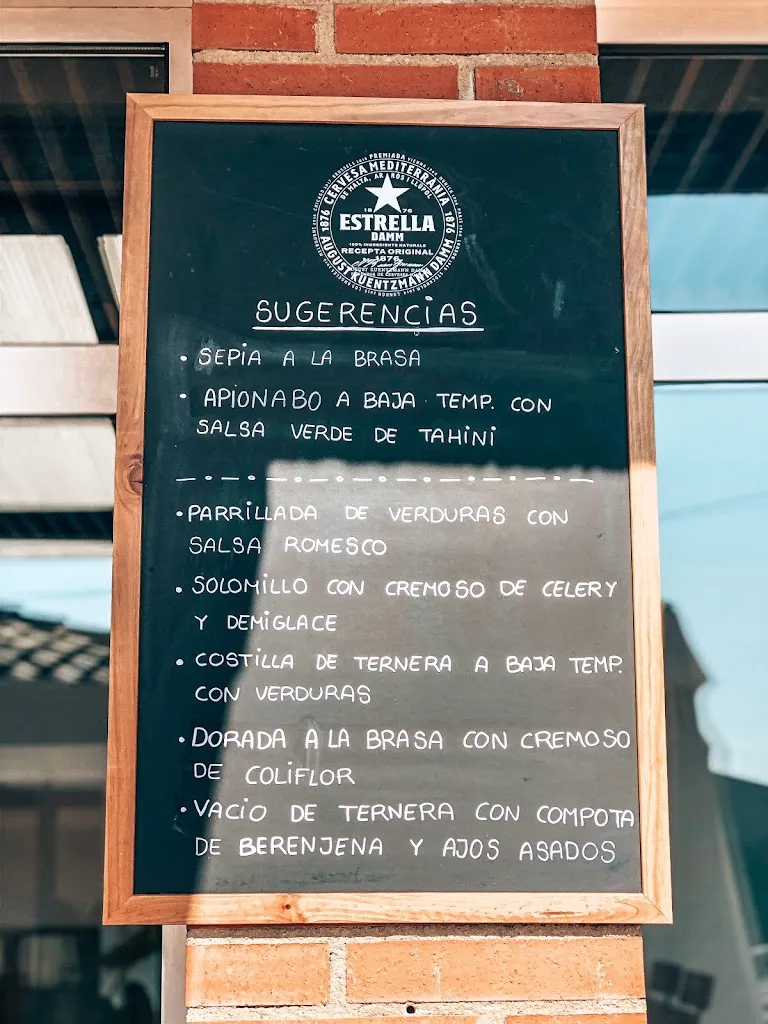 PREMIADA
CERVESA MEDITERRÀNIA
DE MALTA, ARRÒS I LLÚPOL
1876
1876
1876
ESTRELLA
DAMM
100% INGREDIENTS NATURALS
RECEPTA ORIGINAL
1876
AUGUST KUENTZMANN DAMM
SUGERENCiAS
• SEPiA A LA BRASA
• APIONABO A BAJA TEMP. CON
SALSA VERDE DE TAHiNi
• PARRiLLADA DE VERDURAS CON
SALSA ROMESCO
• SOLOMILLO CON CREMOSO DE CELERY
Y DEMiGLACE
• COSTiLLA DE TERNERA A BAJA TEMP.
CON VERDURAS
• DORADA A LA BRASA CON CREMOSO
DE COLIFLOR
• VACiO DE TERNERA CON COMPOTA
DE BERENJENA Y AJOS ASADOS